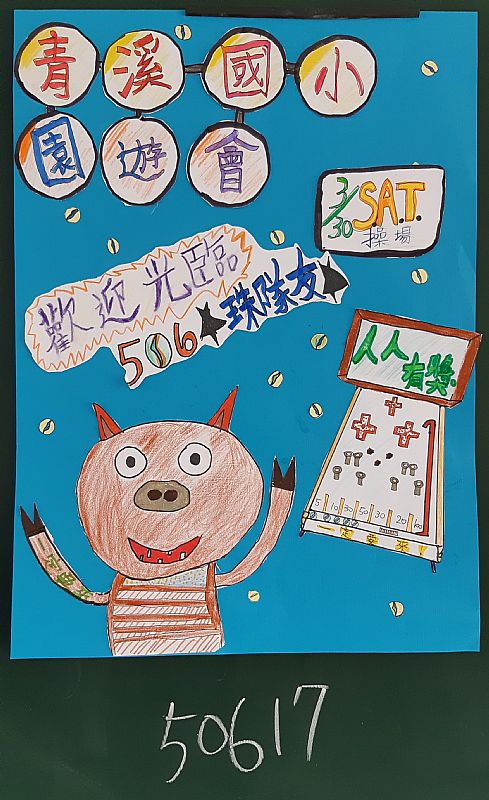 青溪國小
園遊會
3/30 S.A.T.
操場
歡迎光臨
506珠隊友
人人
有獎
5 10 30 50 30 20 10
一定要來!
50617